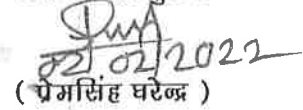 02/02/2022
( प्रेमसिंह घरेन्द्र )